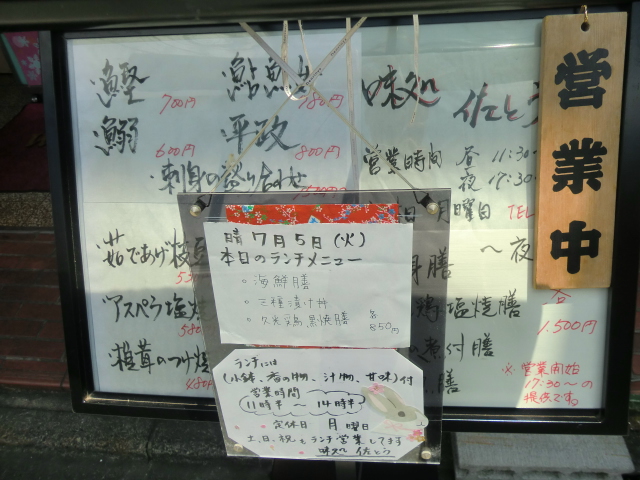 鰹 700円
鮎魚 780円
鰯 600円
平政 800円
刺身の盛り合わせ
茹であげ枝豆
アスペラ塩焼
580
椎茸のつけ焼
480円
味処 佐とう
営業時間 昼 11:30~
夜 17:30~
月曜日 TEL
~夜
膳
鶏塩焼膳
1.500円
煮付膳
膳
※営業開始
17:30~の
提供です。
営業中
晴 7月5日(火)
本日のランチメニュー
○海鮮膳
○三種漬け丼
各
850円
ランチには
(小鉢、香の物、汁物、甘味)付
営業時間
11時半 ~ 14時半
○定休日 月曜日
土、日、祝もランチ営業してます
味処 佐とう